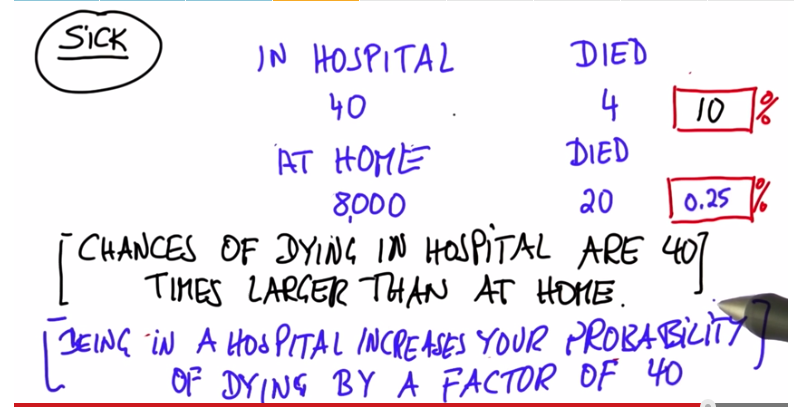 SICK
IN HOSPITAL DIED
40 4 10 %
AT HOME DIED
8,000 20 0.25 %
[CHANCES OF DYING IN HOSPITAL ARE 40
TIMES LARGER THAN AT HOME.]
[BEING IN A HOSPITAL INCREASES YOUR PROBABILITY
OF DYING BY A FACTOR OF 40]